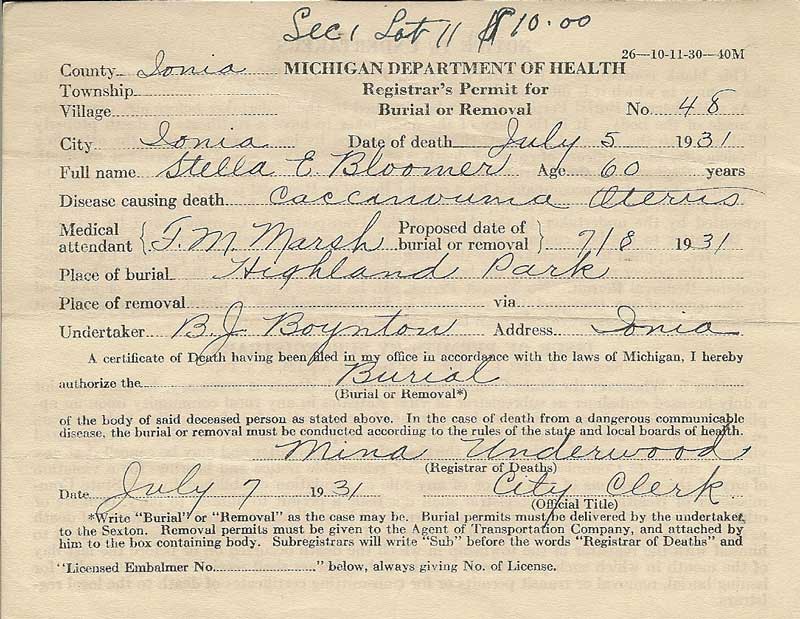 Sec 1 Lot 11 $10.00
26—10-11-30—40M
County Ionia MICHIGAN DEPARTMENT OF HEALTH
Township Registrar's Permit for
Village Burial or Removal No. 48
City Ionia Date of death July 5 1931
Full name Stella E. Bloomer Age 60 years
Disease causing death Caccanouma Uterus
Medical attendant } F. M. Marsh Proposed date of burial or removal } 7/8 1931
Place of burial Highland Park
Place of removal via
Undertaker B. J. Boynton Address Ionia
A certificate of Death having been filed in my office in accordance with the laws of Michigan, I hereby
authorize the Burial
(Burial or Removal*)
of the body of said deceased person as stated above. In the case of death from a dangerous communicable
disease, the burial or removal must be conducted according to the rules of the state and local boards of health.
Mina Underwood
(Registrar of Deaths)
Date July 7 1931 City Clerk
(Official Title)
*Write "Burial" or "Removal" as the case may be. Burial permits must be delivered by the undertaker,
to the Sexton. Removal permits must be given to the Agent of Transportation Company, and attached by
him to the box containing body. Subregistrars will write "Sub" before the words "Registrar of Deaths" and
"Licensed Embalmer No. " below, always giving No. of License.